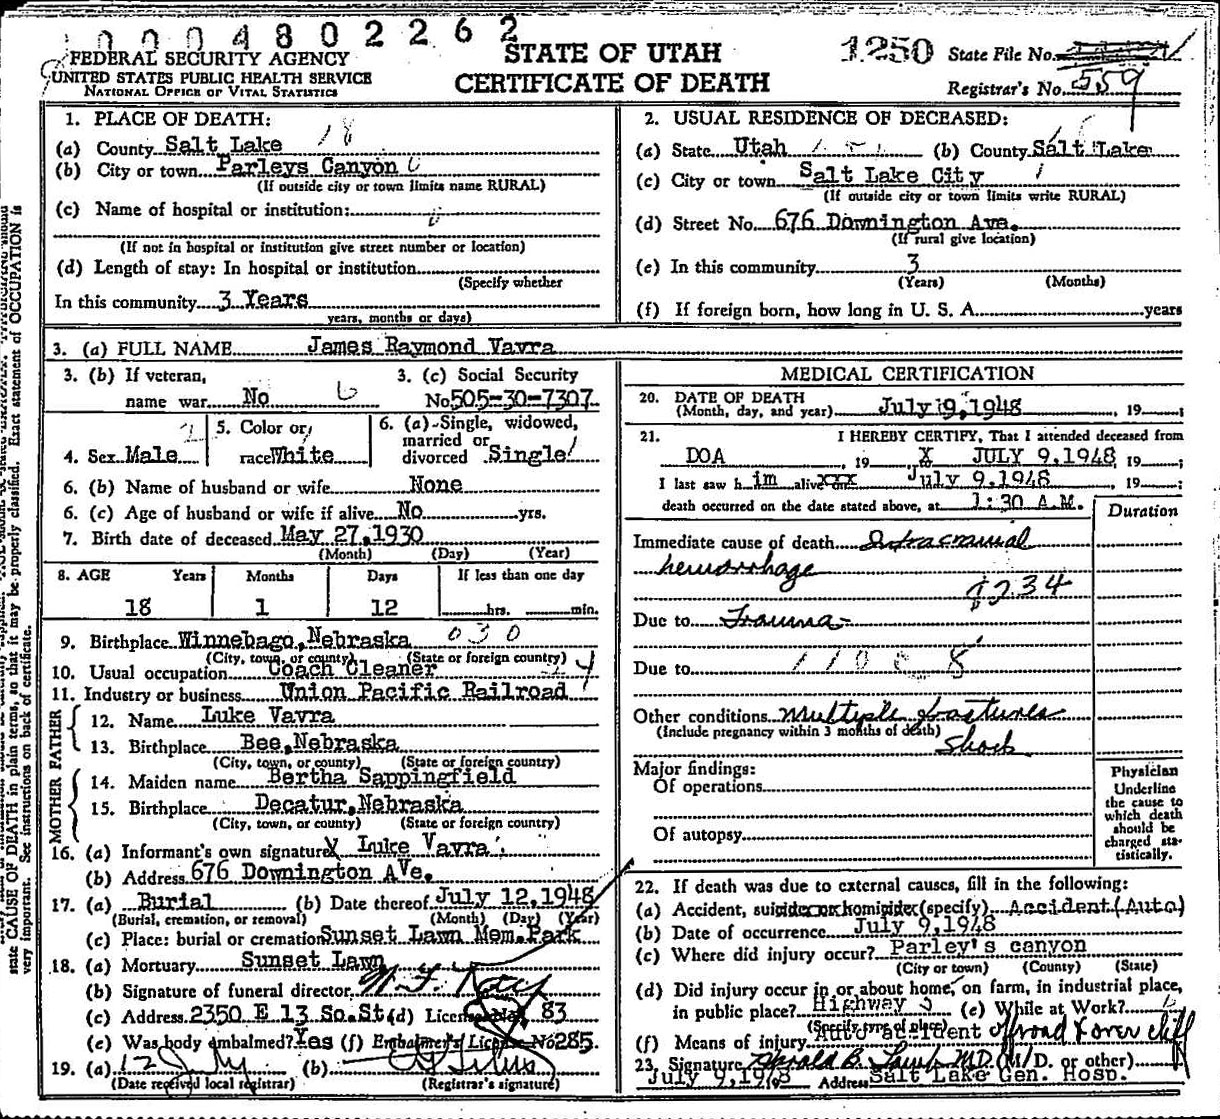 0004802262
FEDERAL SECURITY AGENCY
UNITED STATES PUBLIC HEALTH SERVICE
NATIONAL OFFICE OF VITAL STATISTICS
STATE OF UTAH
CERTIFICATE OF DEATH
1250 State File No.
Registrar's No. 559
1. PLACE OF DEATH: 18
(a) County Salt Lake
(b) City or town Parleys Canyon 0
(If outside city or town limits name RURAL)
(c) Name of hospital or institution:
(If not in hospital or institution give street number or location)
(d) Length of stay: In hospital or institution
(Specify whether
In this community 3 Years
years, months or days)
2. USUAL RESIDENCE OF DECEASED:
(a) State Utah (b) County Salt Lake
(c) City or town Salt Lake City
(If outside city or town limits write RURAL)
(d) Street No. 676 Downington Ave.
(If rural give location)
(e) In this community 3
(Years) (Months)
(f) If foreign born, how long in U. S. A. years
3. (a) FULL NAME James Raymond Vavra
3. (b) If veteran,
name war No
3. (c) Social Security
No. 505-30-7307
4. Sex Male
5. Color or
race White
6. (a) Single, widowed,
married or
divorced Single
6. (b) Name of husband or wife None
6. (c) Age of husband or wife if alive No yrs.
7. Birth date of deceased May 27,1930
(Month) (Day) (Year)
8. AGE Years Months Days If less than one day
18 1 12 hrs. min.
9. Birthplace Winnebago,Nebraska 030
(City, town, or county) (State or foreign country)
10. Usual occupation Coach Cleaner
11. Industry or business Union Pacific Railroad
FATHER
12. Name Luke Vavra
13. Birthplace Bee,Nebraska
(City, town, or county) (State or foreign country)
MOTHER
14. Maiden name Bertha Sappingfield
15. Birthplace Decatur,Nebraska
(City, town, or county) (State or foreign country)
16. (a) Informant's own signature X Luke Vavra
(b) Address 676 Downington AVe.
17. (a) Burial (b) Date thereof July 12,1948
(Burial, cremation, or removal) (Month) (Day) (Year)
(c) Place: burial or cremation Sunset Lawn Mem.Park
18. (a) Mortuary Sunset Lawn
(b) Signature of funeral director
(c) Address 2350 E 13 So.St. (d) License No. 83
(e) Was body embalmed? Yes (f) Embalmer's License No 285.
19. (a) 12 July (b)
(Date received local registrar) (Registrar's signature)
MEDICAL CERTIFICATION
20. DATE OF DEATH
(Month, day, and year) July 9,1948, 19 ;
21. I HEREBY CERTIFY, That I attended deceased from
DOA, 19 X JULY 9,1948, 19 ;
I last saw h im alive xxx July 9,1948, 19 ;
death occurred on the date stated above, at 1:30 A.M.
Duration
Immediate cause of death Intracranial
hemorrhage
Due to Trauma
Due to
Other conditions Multiple fractures
(Include pregnancy within 3 months of death)
Shock
Major findings:
Of operations
Of autopsy
Physician
Underline
the cause to
which death
should be
charged sta-
tistically.
22. If death was due to external causes, fill in the following:
(a) Accident, suicide or homicide (specify) Accident(Auto)
(b) Date of occurrence July 9,1948
(c) Where did injury occur? Parley's canyon
(City or town) (County) (State)
(d) Did injury occur in or about home, on farm, in industrial place,
in public place? Highway (e) While at Work?
(Specify type of place)
(f) Means of injury Auto accident off road & over cliff
23. Signature M.D. (M/D. or other)
July 9,1948 Address Salt Lake Gen. Hosp.
state CAUSE OF DEATH in plain terms, so that it may be properly classified. Exact statement of OCCUPATION is
very important. See instructions on back of certificate.